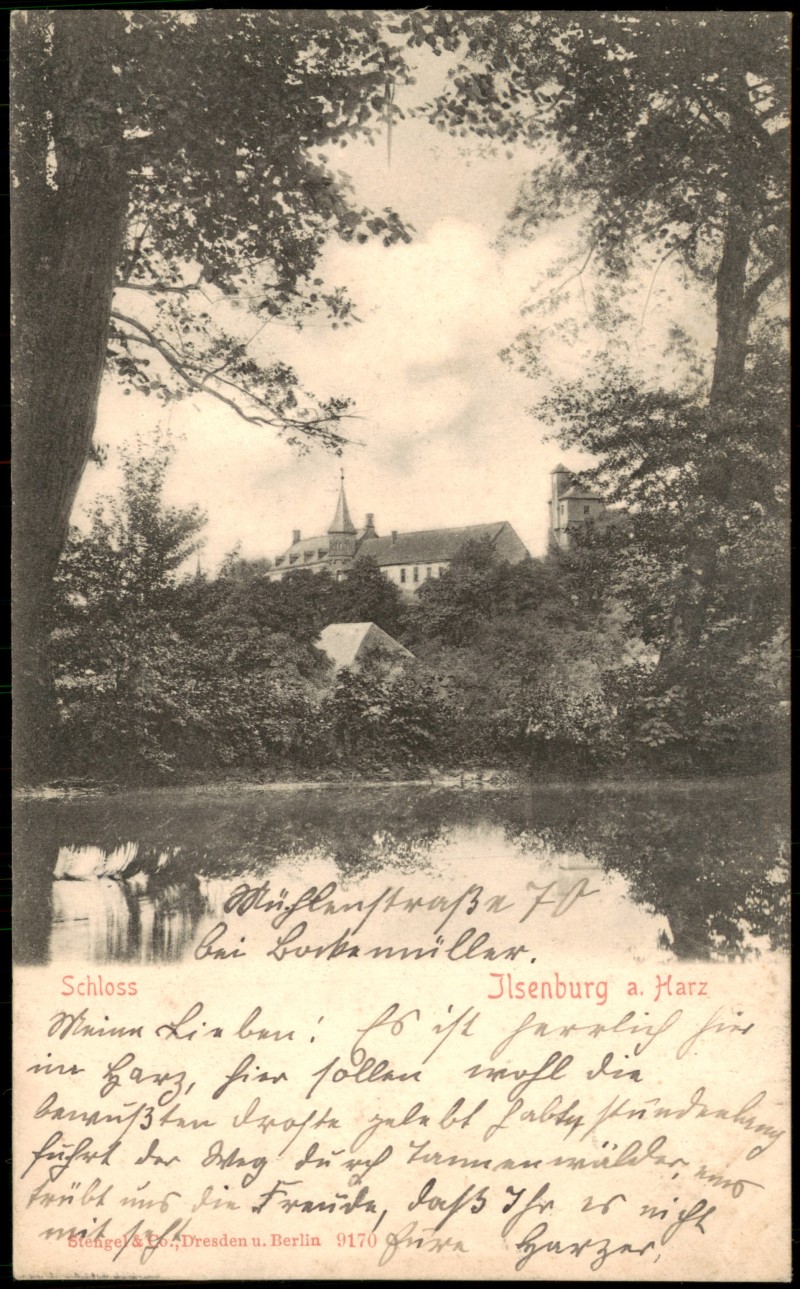 Mühlenstraße 70
bei Bockemüller.
Schloss
Ilsenburg a. Harz
Meine Lieben! Es ist herrlich hier
im Harz, hier sollen wohl die
bewußten gelebt haben, stundenlang
führt der Weg durch Tannenwälder, was
trübt uns die Freude, daß Ihr es nicht
mit seht. Eure Harzer.
Stengel & Co., Dresden u. Berlin 9170